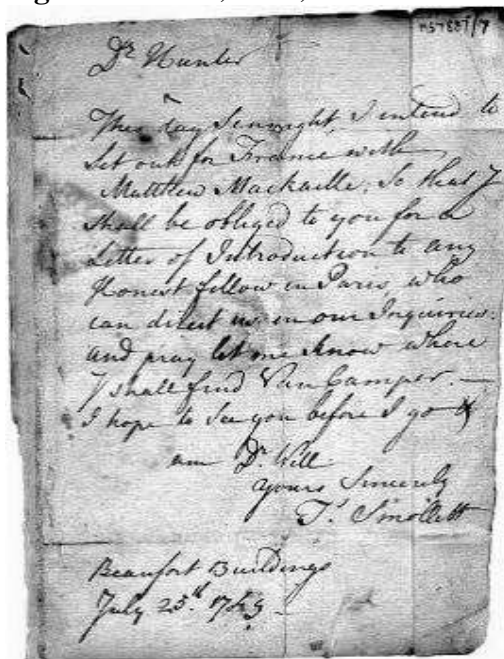 Dr. Hunter
This day Sennight, I intend to
Set out for France with
Matthew Mackaille; So that I
shall be obliged to you for a
Letter of Introduction to any
Honest fellow in Paris, who
can direct us in our Inquiries:
and pray let me know where
I shall find Van Camper. —
I hope to See you before I go &
am Dr. Will
Yours Sincerely
Ts. Smollett
Beaufort Buildings
July 25th